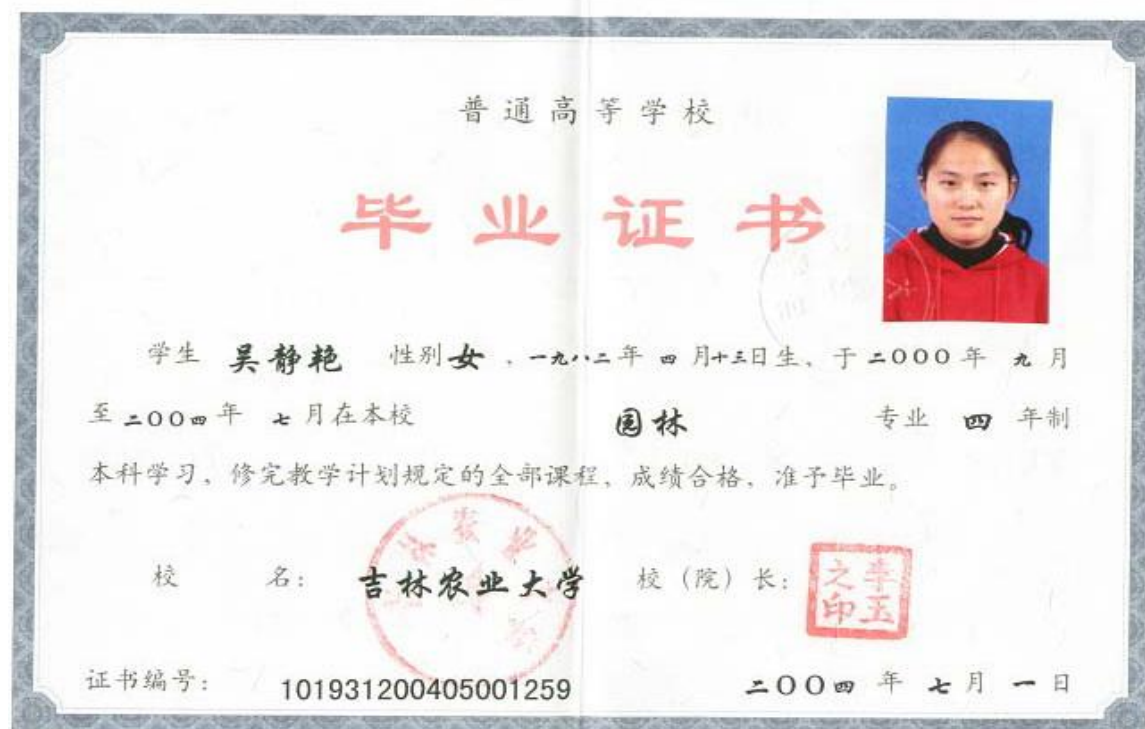 普通高等学校
毕业证书
学生 吴静艳 性别 女 ，一九八二年 四 月十三日生、于 二000 年 九 月
至 二00四 年 七 月在本校 园林 专业 四 年制
本科学习、修完教学计划规定的全部课程、成绩合格，准予毕业。
校 名： 吉林农业大学 校（院）长： 李玉之印
证书编号： 101931200405001259 二00四 年 七 月 一 日